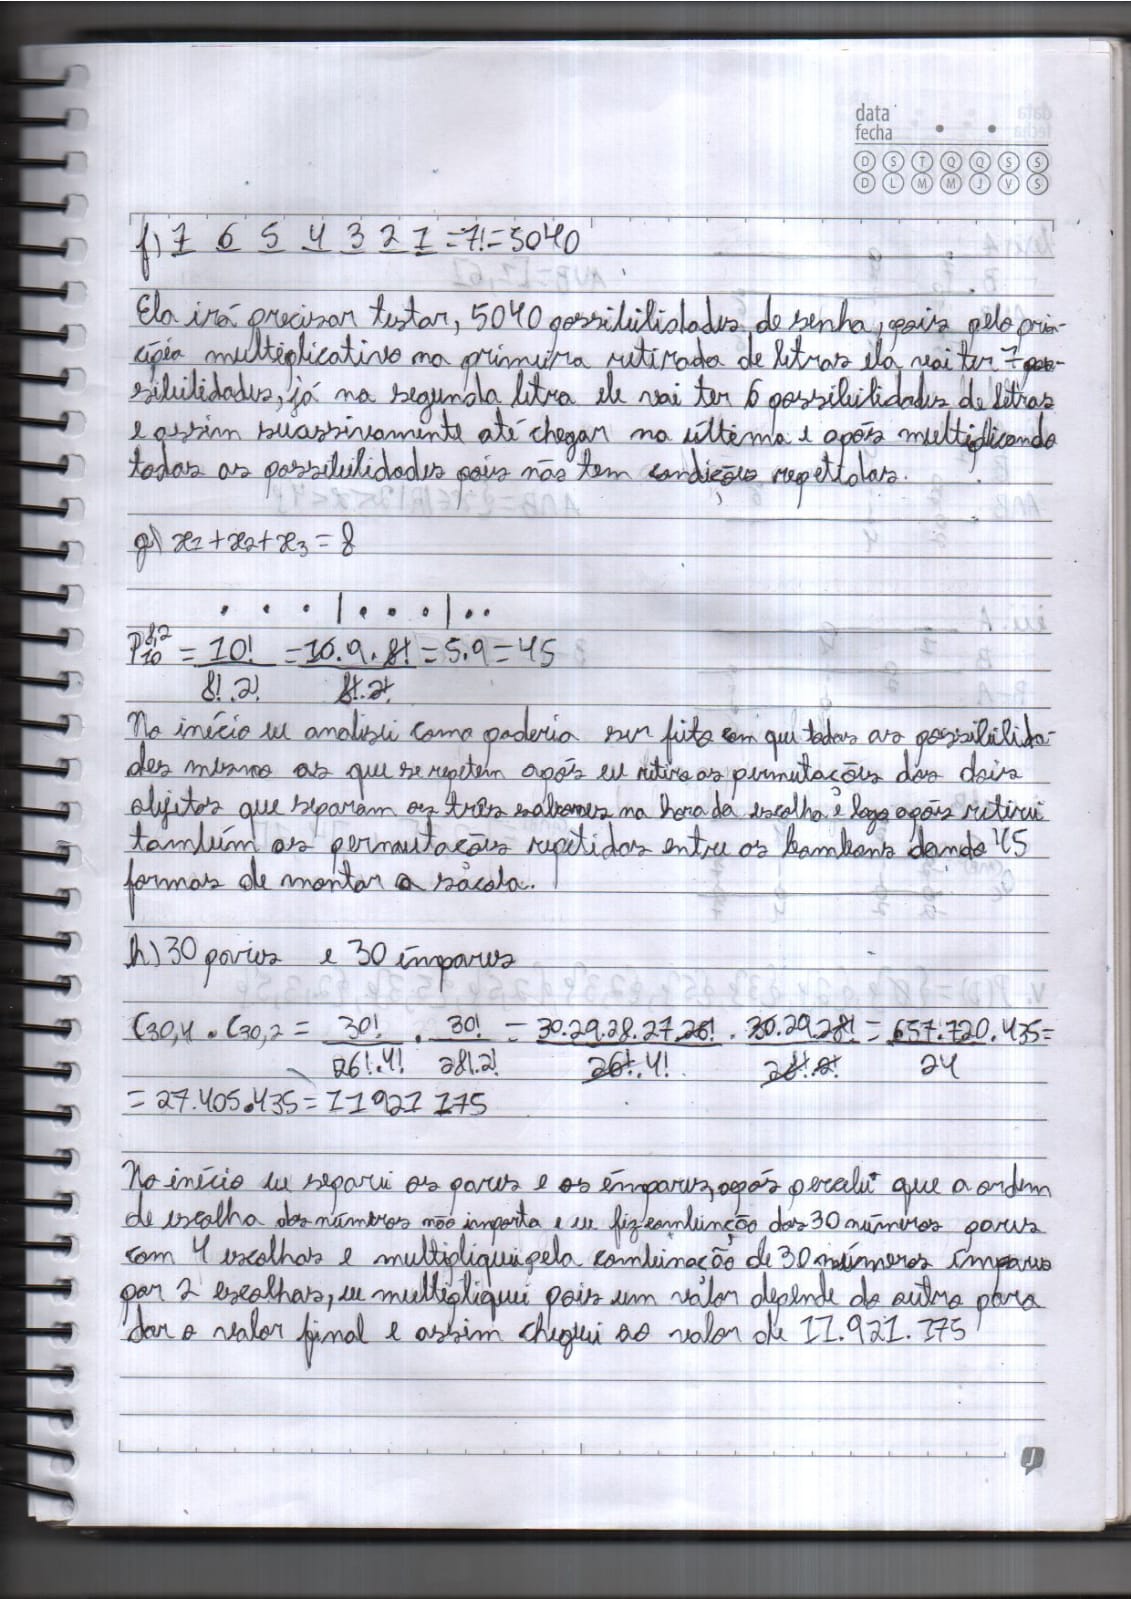 data
fecha
D S T Q Q S S
D L M M J V S
f) 7 6 5 4 3 2 1 = 7! = 5040
Ela irá precisar testar, 5040 possibilidades de senha, pois pelo prin-
cípio multiplicativo na primeira retirada de letras ela vai ter 7 pos-
sibilidades, já na segunda letra ele vai ter 6 possibilidades de letras
e assim suassivamente até chegar na última e após multiplicando
todas as possibilidades pois não tem condições repetidas.
g) x1 + x2 + x3 = 8
. . . | . . . . | . .
P10^8,2 = 10! / 8!.2! = 10.9.8! / 8!.2! = 5.9 = 45
No início eu analisei como poderia ser feito com que todas as possibilida-
des mesmo as que se repetem após eu retiro as permutações dos dois
objetos que separam os três sabores na hora da escolha e logo após retirei
também as permutações repetidas entre os bombons dando 45
formas de montar a sacola.
h) 30 pares e 30 ímpares
C30,4 . C30,2 = 30! / 26!.4! . 30! / 28!.2! = 30.29.28.27.26! / 26!.4! . 30.29.28! / 28!.2! = 657.720 / 24 . 435 =
= 27.405.435 = 11921 175
No início eu separei os pares e os ímpares, após percebi que a ordem
de escolha dos números não importa e eu fiz combinção dos 30 números pares
com 4 escolhas e multipliquei pela combinação de 30 números ímpares
por 2 escolhas, eu multipliquei pois um valor depende do outro para
dar o valor final e assim cheguei ao valor de 11.921.175